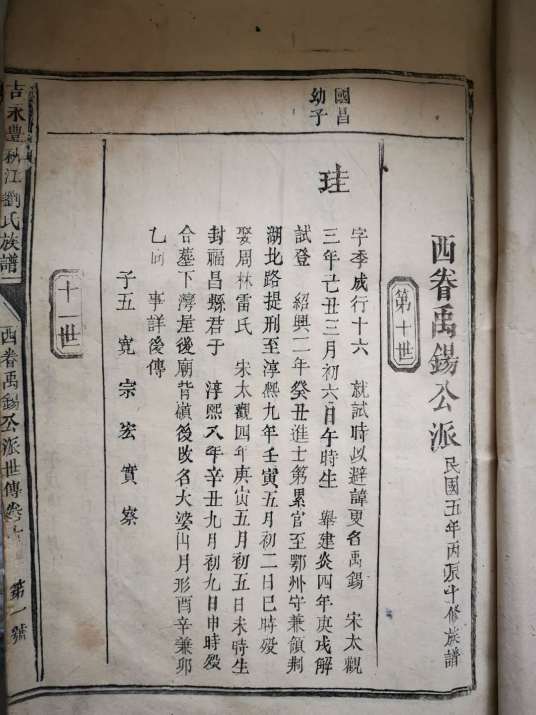 西眷禹錫公派
民國五年丙辰修族譜
第十世
國昌
幼子
珪
字季行十六 就試時以避諱更名禹錫 宋太觀
三年己丑三月初六日午時生 舉建炎四年庚戌解
試登 紹興二年癸丑進士第累官至鄂州守兼領荊
湖北路提刑至淳熙九年壬寅五月初二日巳時歿
娶周林雷氏 宋太觀四年庚寅五月初五日未時生
封福昌縣君于 淳熙八年辛丑九月初九日申時歿
合墓下灣屋後廟背嶺後改名大婆山月形酉辛兼卯
乙向 事詳後傳
子五 寬 宗 宏 實 察
十一世
吉永豐秋江劉氏族譜
西眷禹錫公派世傳卷
第一號